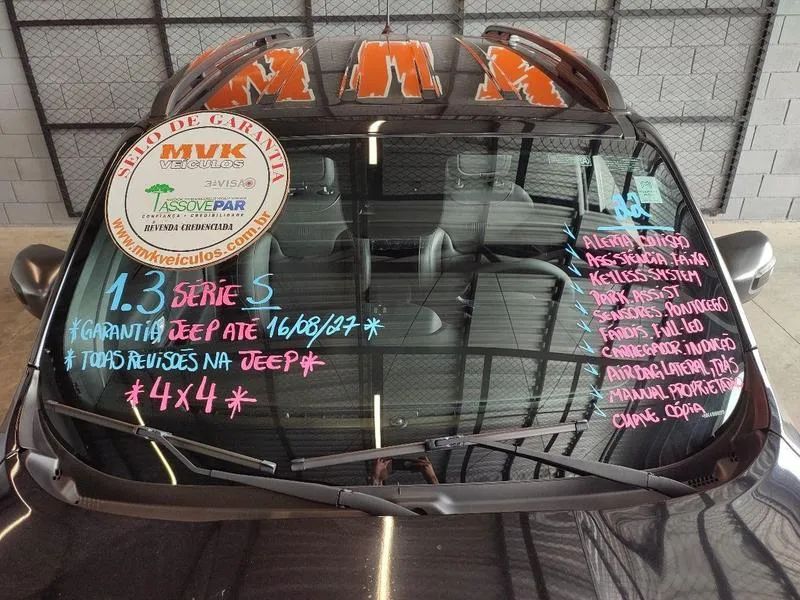 MVK
SELO DE GARANTIA
MVK
VEÍCULOS
3ªVISÃO
ASSOVEPAR
CONFIANÇA • CREDIBILIDADE
REVENDA CREDENCIADA
www.mvkveiculos.com.br
1.3 SERIE S
*GARANTIA JEEP ATÉ 16/08/27*
*TODAS REVISÕES NA JEEP*
*4x4*
22
ALERTA COLISÃO
ASSISTÊNCIA FAIXA
KEYLESS SYSTEM
PARK ASSIST
SENSORES PONTO CEGO
FÁROIS FULL LED
CARREGADOR INDUÇÃO
AIRBAG LATERAL
MANUAL PROPRIETÁRIO
CHAVE CÓPIA